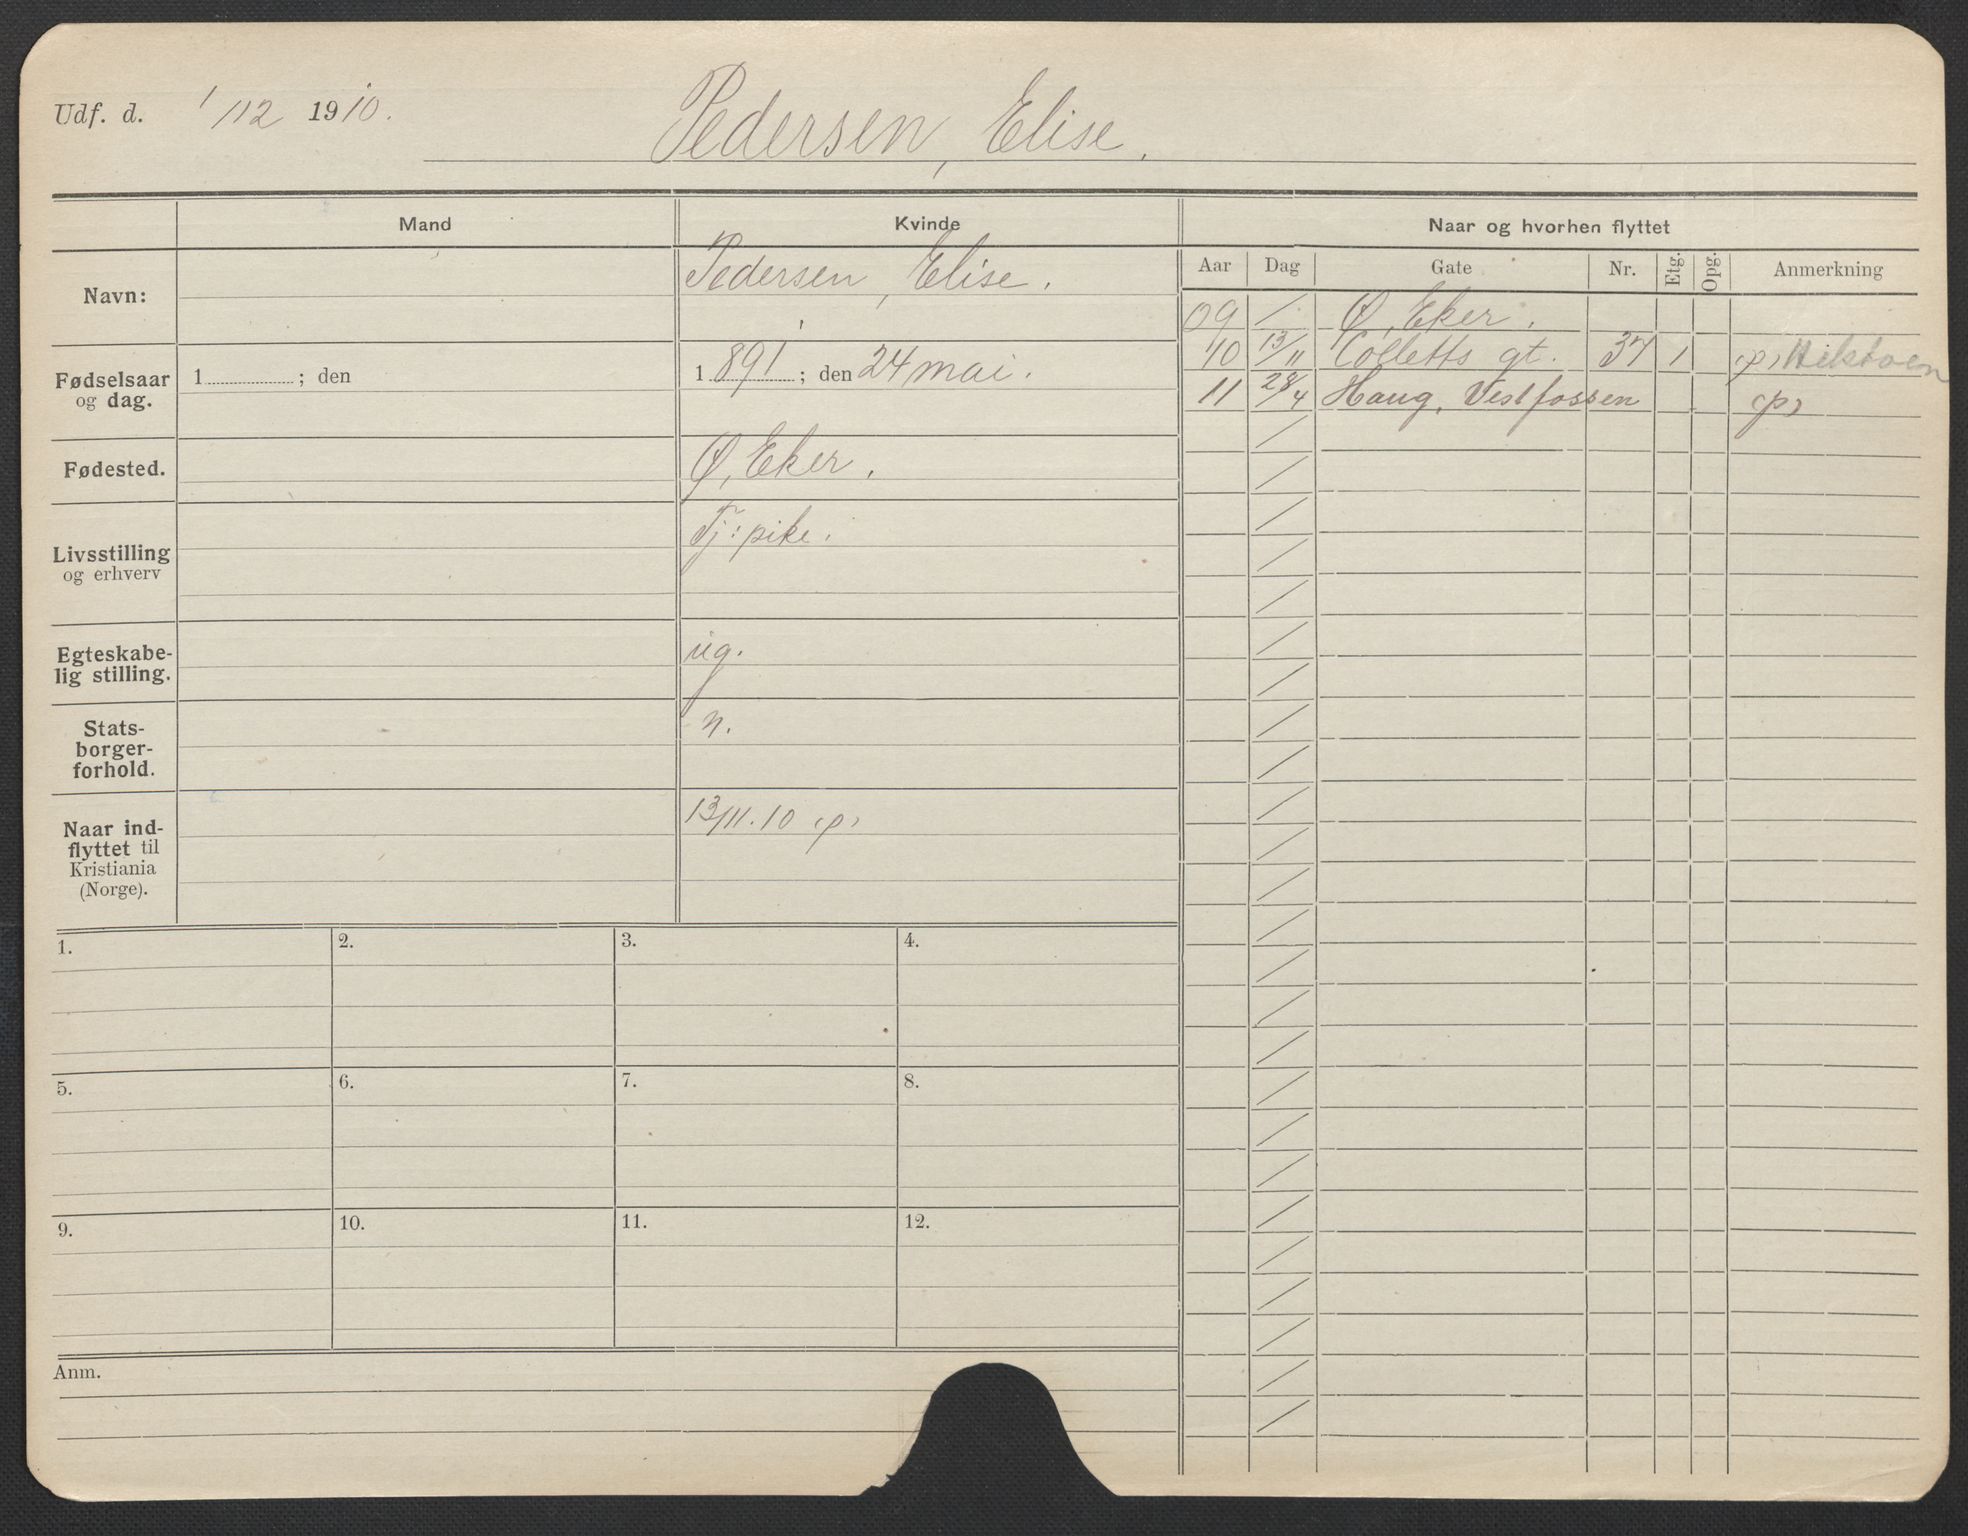 Udf. d. 1/12 1910.
Pedersen, Elise.
Mand
Kvinde
Naar og hvorhen flyttet
Navn:
Pedersen, Elise.
Aar Dag Gate Nr. Etg. Opg. Anmerkning
09 / Ø, Eker.
10 13/11 Colletts gt. 37 1 (p)
11 28/4 Haug, Vestfossen (p)
Fødselsaar
og dag.
1 ; den
1891; den 24 mai.
Fødested.
Ø, Eker.
Livsstilling
og erhverv
Tj: pike.
Egteskabe-
lig stilling.
ug.
Stats-
borger-
forhold.
n.
Naar ind-
flyttet til
Kristiania
(Norge).
13/11.10 (p)
1. 2. 3. 4.
5. 6. 7. 8.
9. 10. 11. 12.
Anm.